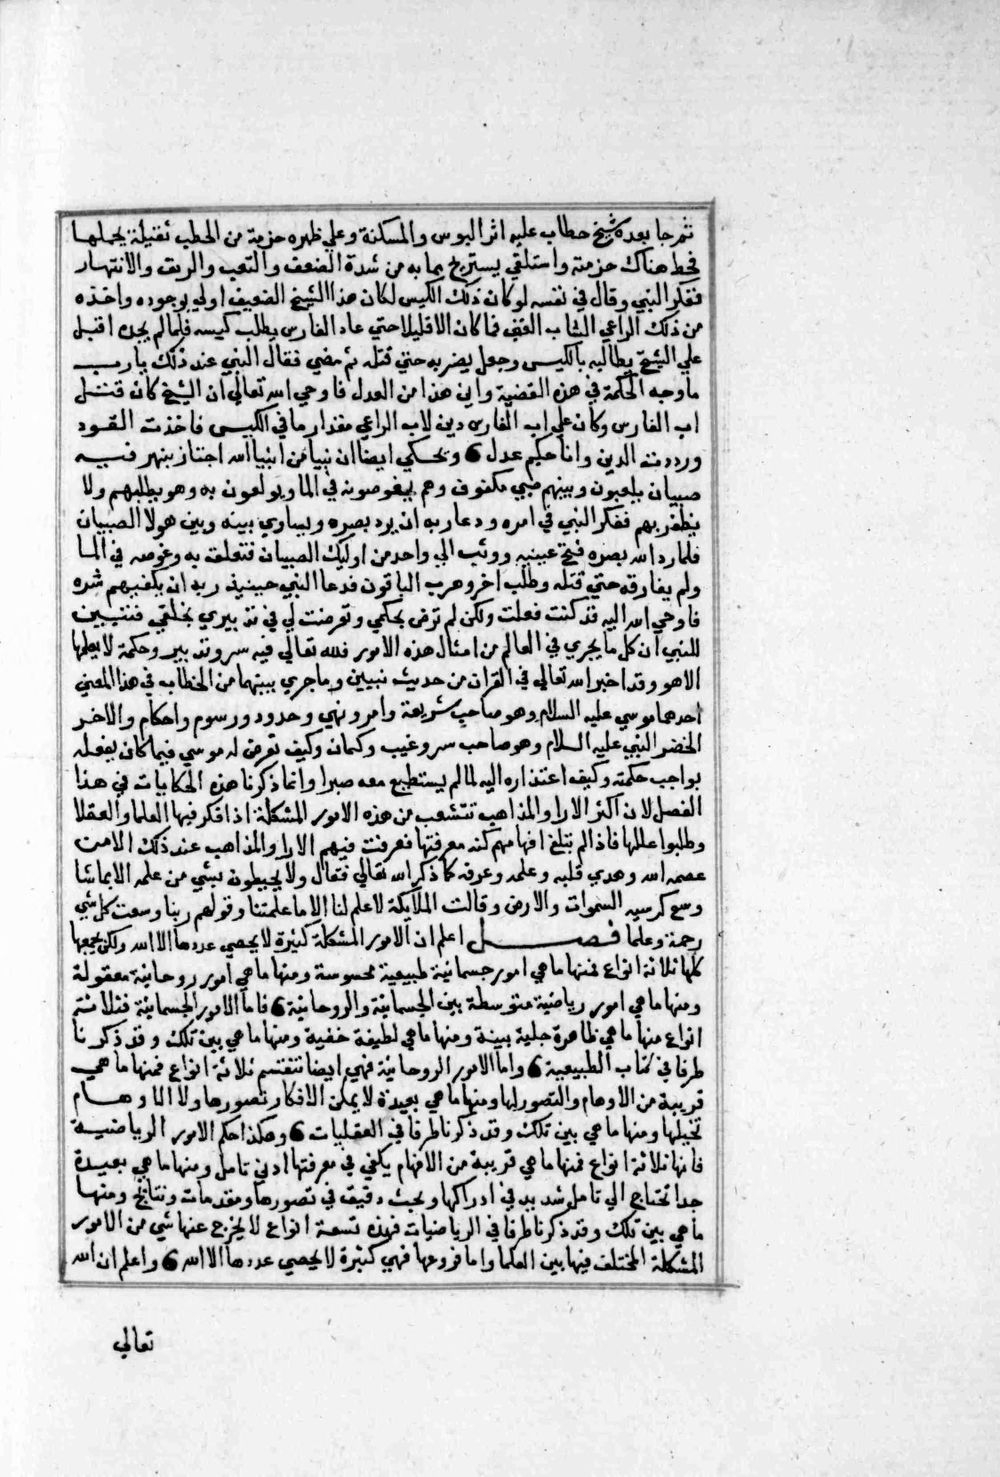 ثم جا بعده شيخ حطاب عليه اثر البوس والمسكنة وعلي ظهره حزمة من الحطب ثقيلة يحملها
فحط هناك حزمته واستلقي يستريح بما به من شدة الضعف والتعب والربق والانتهار
ففكر النبي وقال في نفسه لو كان ذلك الكيس لكان هذا الشيخ الضعيف اولي بوجوده واخذه
من ذلك الراعي الشاب القوي فما كان الا قليلا حتي عاد الفارس يطلب كيسه فلما لم يجده اقبل
علي الشيخ يطالبه بالكيس وجعل يضربه حتي قتله ثم مضي فقال النبي عند ذلك يا رب
ما وجه الحكمة في هذه القضية واين هذا من العدل فاوحي الله تعالي ان الشيخ كان قتل
اب الفارس وكان علي اب الفارس دين لاب الراعي مقدار ما في الكيس فاخذت القود
ورددت الدين وانا حكيم عدل 6 ويحكي ايضا ان نبيا من انبيا الله اجتاز بنهر فيه
صبيان يلعبون وبينهم صبي مكفوف وهم يغوصونه في الما ويولعون به وهو يطلبهم ولا
يظفر بهم ففكر النبي في امره ودعا ربه ان يرد بصره ويساوي بينه وبين هولا الصبيان
فلما رد الله بصره فتح عينيه ووثب الي واحد من اوليك الصبيان فتعلق به وغوصه في الما
ولم يفارقه حتي قتله وطلب اخر وهرب الباقون فدعا النبي حينيذ ربه ان يكفيهم شره
فاوحي الله اليه قد كنت فعلت ولكن لم ترض بحكمي وتعرضت لي في تدبيري بخلقي فتبين
للنبي ان كل ما يجري في العالم من امثال هذه الامور فلله تعالي فيه سر وتدبير وحكمة لا يعلمها
الا هو وقد اخبر الله تعالي في القران من حديث نبيين وما جري بينهما من الخطاب في هذا المعني
احدهما موسي عليه السلام وهو صاحب شريعة وامر ونهي وحدود ورسوم واحكام والاخر
الخضر النبي عليه السلام وهو صاحب سر وغيب وكتمان وكيف تعرض له موسي فيما كان يفعله
بواجب حكمته وكيف اعتذاره اليه لما لم يستطيع معه صبرا وانما ذكرنا هذه الحكايات في هذا
الفصل لان اكثر الارا والمذاهب تتشعب من هذه الامور المشكلة اذا فكر فيها العلما والعقلا
وطلبوا عللها فاذا لم تبلغ افهامهم كنه معرفتها فعرفت فيهم الارا والمذاهب عند ذلك الا من
عصمه الله وهدي قلبه وعلمه وعرفه كما ذكر الله تعالي فقال ولا يحيطون بشي من علمه الا بما شا
وسع كرسيه السموات والارض وقالت الملايكة لا علم لنا الا ما علمتنا وقولهم ربنا وسعت كل شي
رحمة وعلما فصل اعلم ان الامور المشكلة كثيرة لا يحصي عددها الا الله ولكن يجمعها
كلها ثلاثة انواع فمنها ما هي امور جسمانية طبيعية محسوسة ومنها ما هي امور روحانية معقولة
ومنها ما هي امور رياضية متوسطة بين الجسمانية والروحانية 6 فاما الامور الجسمانية فثلاثة
انواع منها ما هي ظاهرة جلية بينة ومنها ما هي لطيفة خفية ومنها ما هي بين تلك وقد ذكرنا
طرفا في كتاب الطبيعية 6 واما الامور الروحانية فهي ايضا تنقسم ثلاثة انواع فمنها ما هي
قريبة من الاوهام والتصور لها ومنها ما هي بعيدة لا يمكن الافكار تصورها ولا الاوهام
تخيلها ومنها ما هي بين تلك وقد ذكرنا طرفا في العقليات 6 وهكذا حكم الامور الرياضية
فانها ثلاثة انواع فمنها ما هي قريبة من الافهام يكفي في معرفتها ادني تامل ومنها ما هي بعيدة
جدا تحتاج الي تامل شديد في ادراكها وبحث دقيق في تصورها ومقدمات ونتايج ومنها
ما هي بين تلك وقد ذكرنا طرفا في الرياضيات فهذه تسعة انواع لا يخرج عنها شي من الامور
المشكلة المختلف فيها بين العلما واما فروعها فهي كثيرة لا يحصي عددها الا الله 6 واعلم ان الله
تعالي